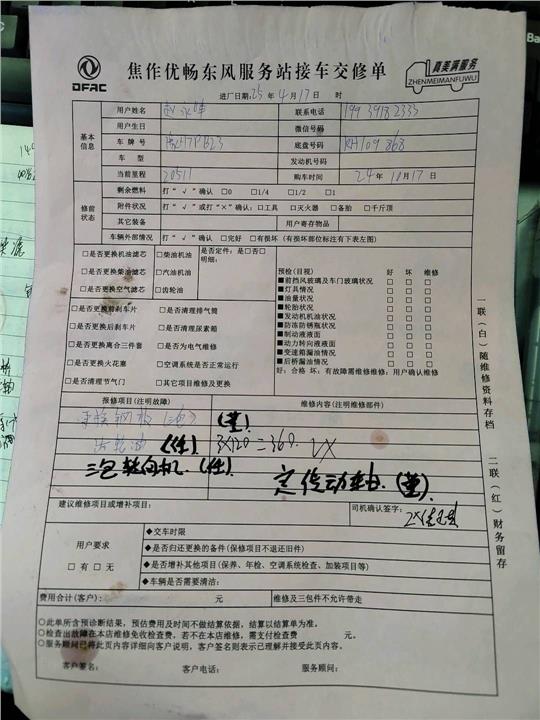 DFAC
焦作优畅东风服务站接车交修单
真美满服务
ZHENMEIMANFUWU
进厂日期:25年4月17日 时
基本信息
用户姓名 联系电话 19939182333
用户生日 微信号码
车牌号 底盘号码 RH109868
车型 发动机号码
当前里程 20511 购车时间 24年10月17日
修前状态
剩余燃料 打“√”确认 □0 □1/4 □1/2 □1
附件状况 打“√”或打“×”确认:□工具 □灭火器 □备胎 □千斤顶
其它装备 用户寄存物品
车辆外部情况 打“√”确认 □完好 □有损坏(有损坏部位标注有下表左图)
□是否更换机油滤芯 □柴油机油 是否定件:是□否□
明细:
□是否更换柴油滤芯 □汽油机油
□是否更换空气滤芯 □齿轮油
□是否更换前刹车片 □是否清理排气筒
□是否更换后刹车片 □是否清理尿素箱
□是否更换离合三件套 □是否为电气维修
□是否更换火花塞 □空调系统是否正常运行
□是否清理节气门 □其它项目维修及更换
预检(目视) 好 坏 维修
■前挡风玻璃及车门玻璃状况 □ □ □
■灯具情况 □ □ □
■油量状况 □ □ □
■轮胎状况 □ □ □
■发动机机油状况 □ □ □
■防冻防锈瓶状况 □ □ □
■制动液液面 □ □ □
■动力转向液液面 □ □ □
■变速箱漏油情况 □ □ □
■后桥漏油情况 □ □ □
好:合格 坏:有故障需维修维修:用户确认维修
报修项目(注明故障) 维修内容(注明维修部件)
3×120=360.
定传动轴.
建议维修项目或增补项目: 司机确认签字:
用户要求
□有 □无
◆交车时限
◆是否归还更换的备件(保修项目不退还旧件)
◆是否增补其他项目(保养、年检、空调系统检查、加装项目等)
◆车辆是否需要清洁:
费用合计(客户): 元 维修及三包件不允许带走
○此单所含预诊断结果,预估费用及时间不做结算依据,结算以结算单为准。
○检查出故障在本店维修免收检查费,若不在本店维修,需支付检查费 元。
○服务顾问已将此页内容详细向客户说明,客户签名则表示已理解并接受此页内容。
客户签名: 客户电话: 服务顾问:
一联(白)随维修资料存档
二联(红)财务留存